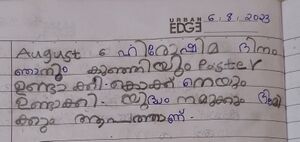 URBAN
EDGE 6.8.2023
August 6 ഹിരോഷിമ ദിനം
ഞാനും കുഞ്ഞിയും Poster
ഉണ്ടാക്കി. കൊക്ക് നെയും
ഉണ്ടാക്കി. യുദ്ധം നമുക്കും ഭൂമി
ക്കും ആപത്താണ്.